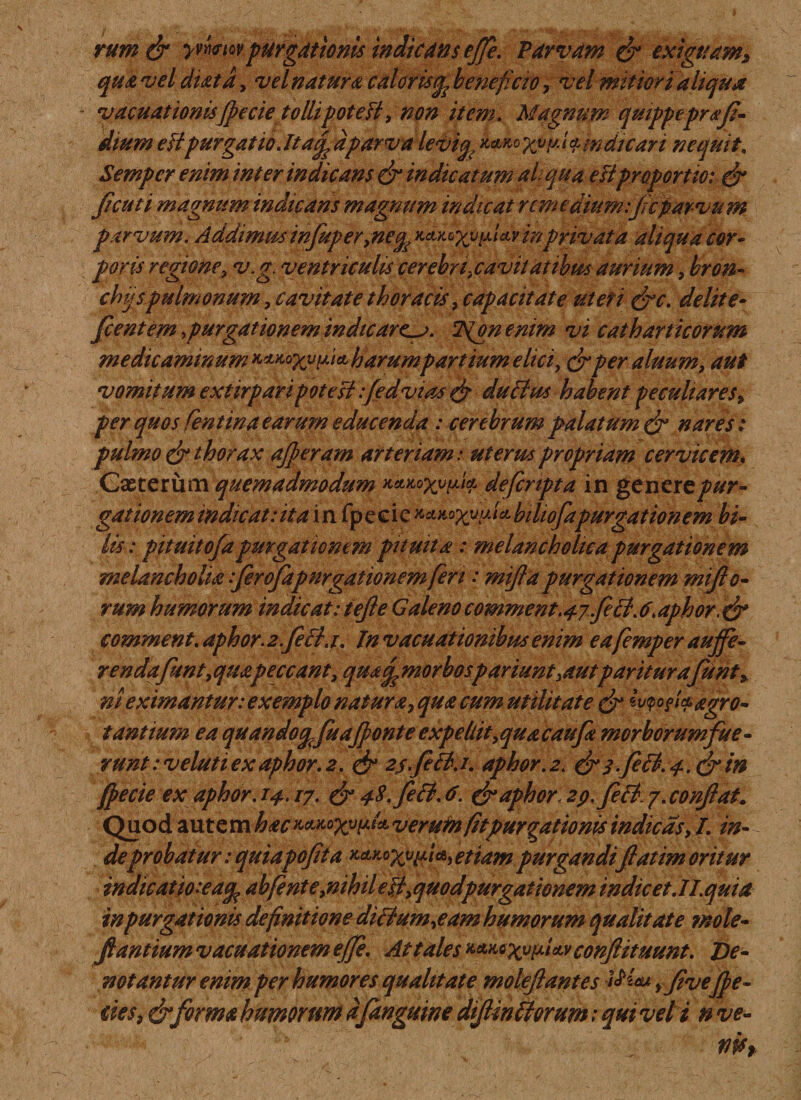 rum & γνήσιον purgationis indicans esse. Parvam & exiguam,
quæ vel diæta, vel naturæ calorisq; beneficio, vel mitiori aliqua
vacuationis specie tolli potest, non item. Magnum quippe præsi-
dium est purgatio. Itaq; à parva leviq; κακοχυμίᾳ indicari nequit.
Semper enim inter indicans & indicatum aliqua est proportio: &
sicuti magnum indicans magnum indicat remedium: sic parvum
parvum. Addimus insuper, neq; κακοχυμίαν in privata aliqua cor-
poris regione, v. g. ventriculis cerebri, cavitatibus aurium, bron-
chijs pulmonum, cavitate thoracis, capacitate uteri &c. delite-
scentem, purgationem indicare. Non enim vi catharticorum
medicaminum κακοχυμία harum partium elici, & per aluum, aut
vomitum extirpari potest: sed vias & ductus habent peculiares,
per quos sentina earum educenda: cerebrum palatum & nares:
pulmo & thorax asperam arteriam: uterus propriam cervicem.
Cæterùm quemadmodum κακοχυμίᾳ descripta in genere pur-
gationem indicat: ita in specie κακοχυμία biliosa purgationem bi-
lis: pituitosa purgationem pituitæ: melancholica purgationem
melancholiæ: serosa purgationem seri: mista purgationem misto-
rum humorum indicat: teste Galeno comment. 47. sect. 6. aphor. &
comment. aphor. 2. sect. 1. In vacuationibus enim ea semper aufe-
renda sunt, quæ peccant, quæq; morbos pariunt, aut paritura sunt,
ni eximantur: exemplo naturæ, quæ cum utilitate & ἐυφορίᾳ ægro-
tantium ea quandoq; sua sponte expellit, quæ causæ morborum fue-
runt: veluti ex aphor. 2. & 25. sect. 1. aphor. 2. & 3. sect. 4. & in
specie ex aphor. 14. 17. & 48. sect. 6. & aphor. 29. sect. 7. constat.
Quod autem hæc κακοχυμία verum sit purgationis indicās, I. in-
de probatur: quia posita κακοχυμία, etiam purgandi statim oritur
indicatio: eaq; absente, nihil est, quod purgationem indicet. II. quia
in purgationis definitione dictum, eam humorum qualitate mole-
stantium vacuationem esse. At tales κακοχυμίαν constituunt. De-
notantur enim per humores qualitate molestantes ἰδέαι, sive spe-
cies, & formæ humorum à sanguine distinctorum: qui vel i n ve-
nis,